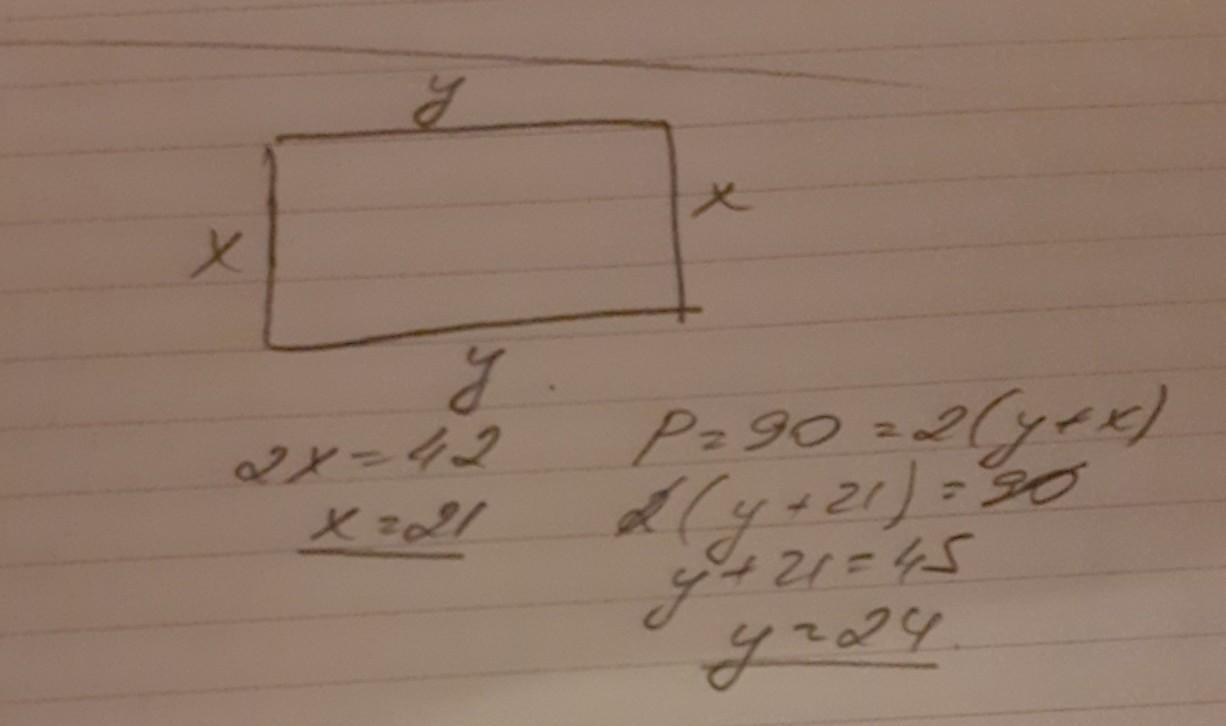 y
x
x
y
2x = 42
x = 21
P = 90 = 2(y + x)
2(y + 21) = 90
y + 21 = 45
y = 24